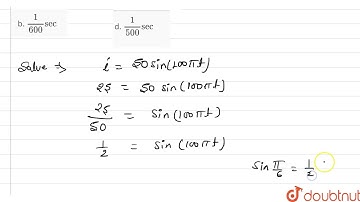 b. 1/600 sec d. 1/500 sec
Solve ⇒ i = 50 sin(100πt)
25 = 50 sin(100πt)
25/50 = sin(100πt)
1/2 = sin(100πt)
sin π/6 = 1/2
doubtnut